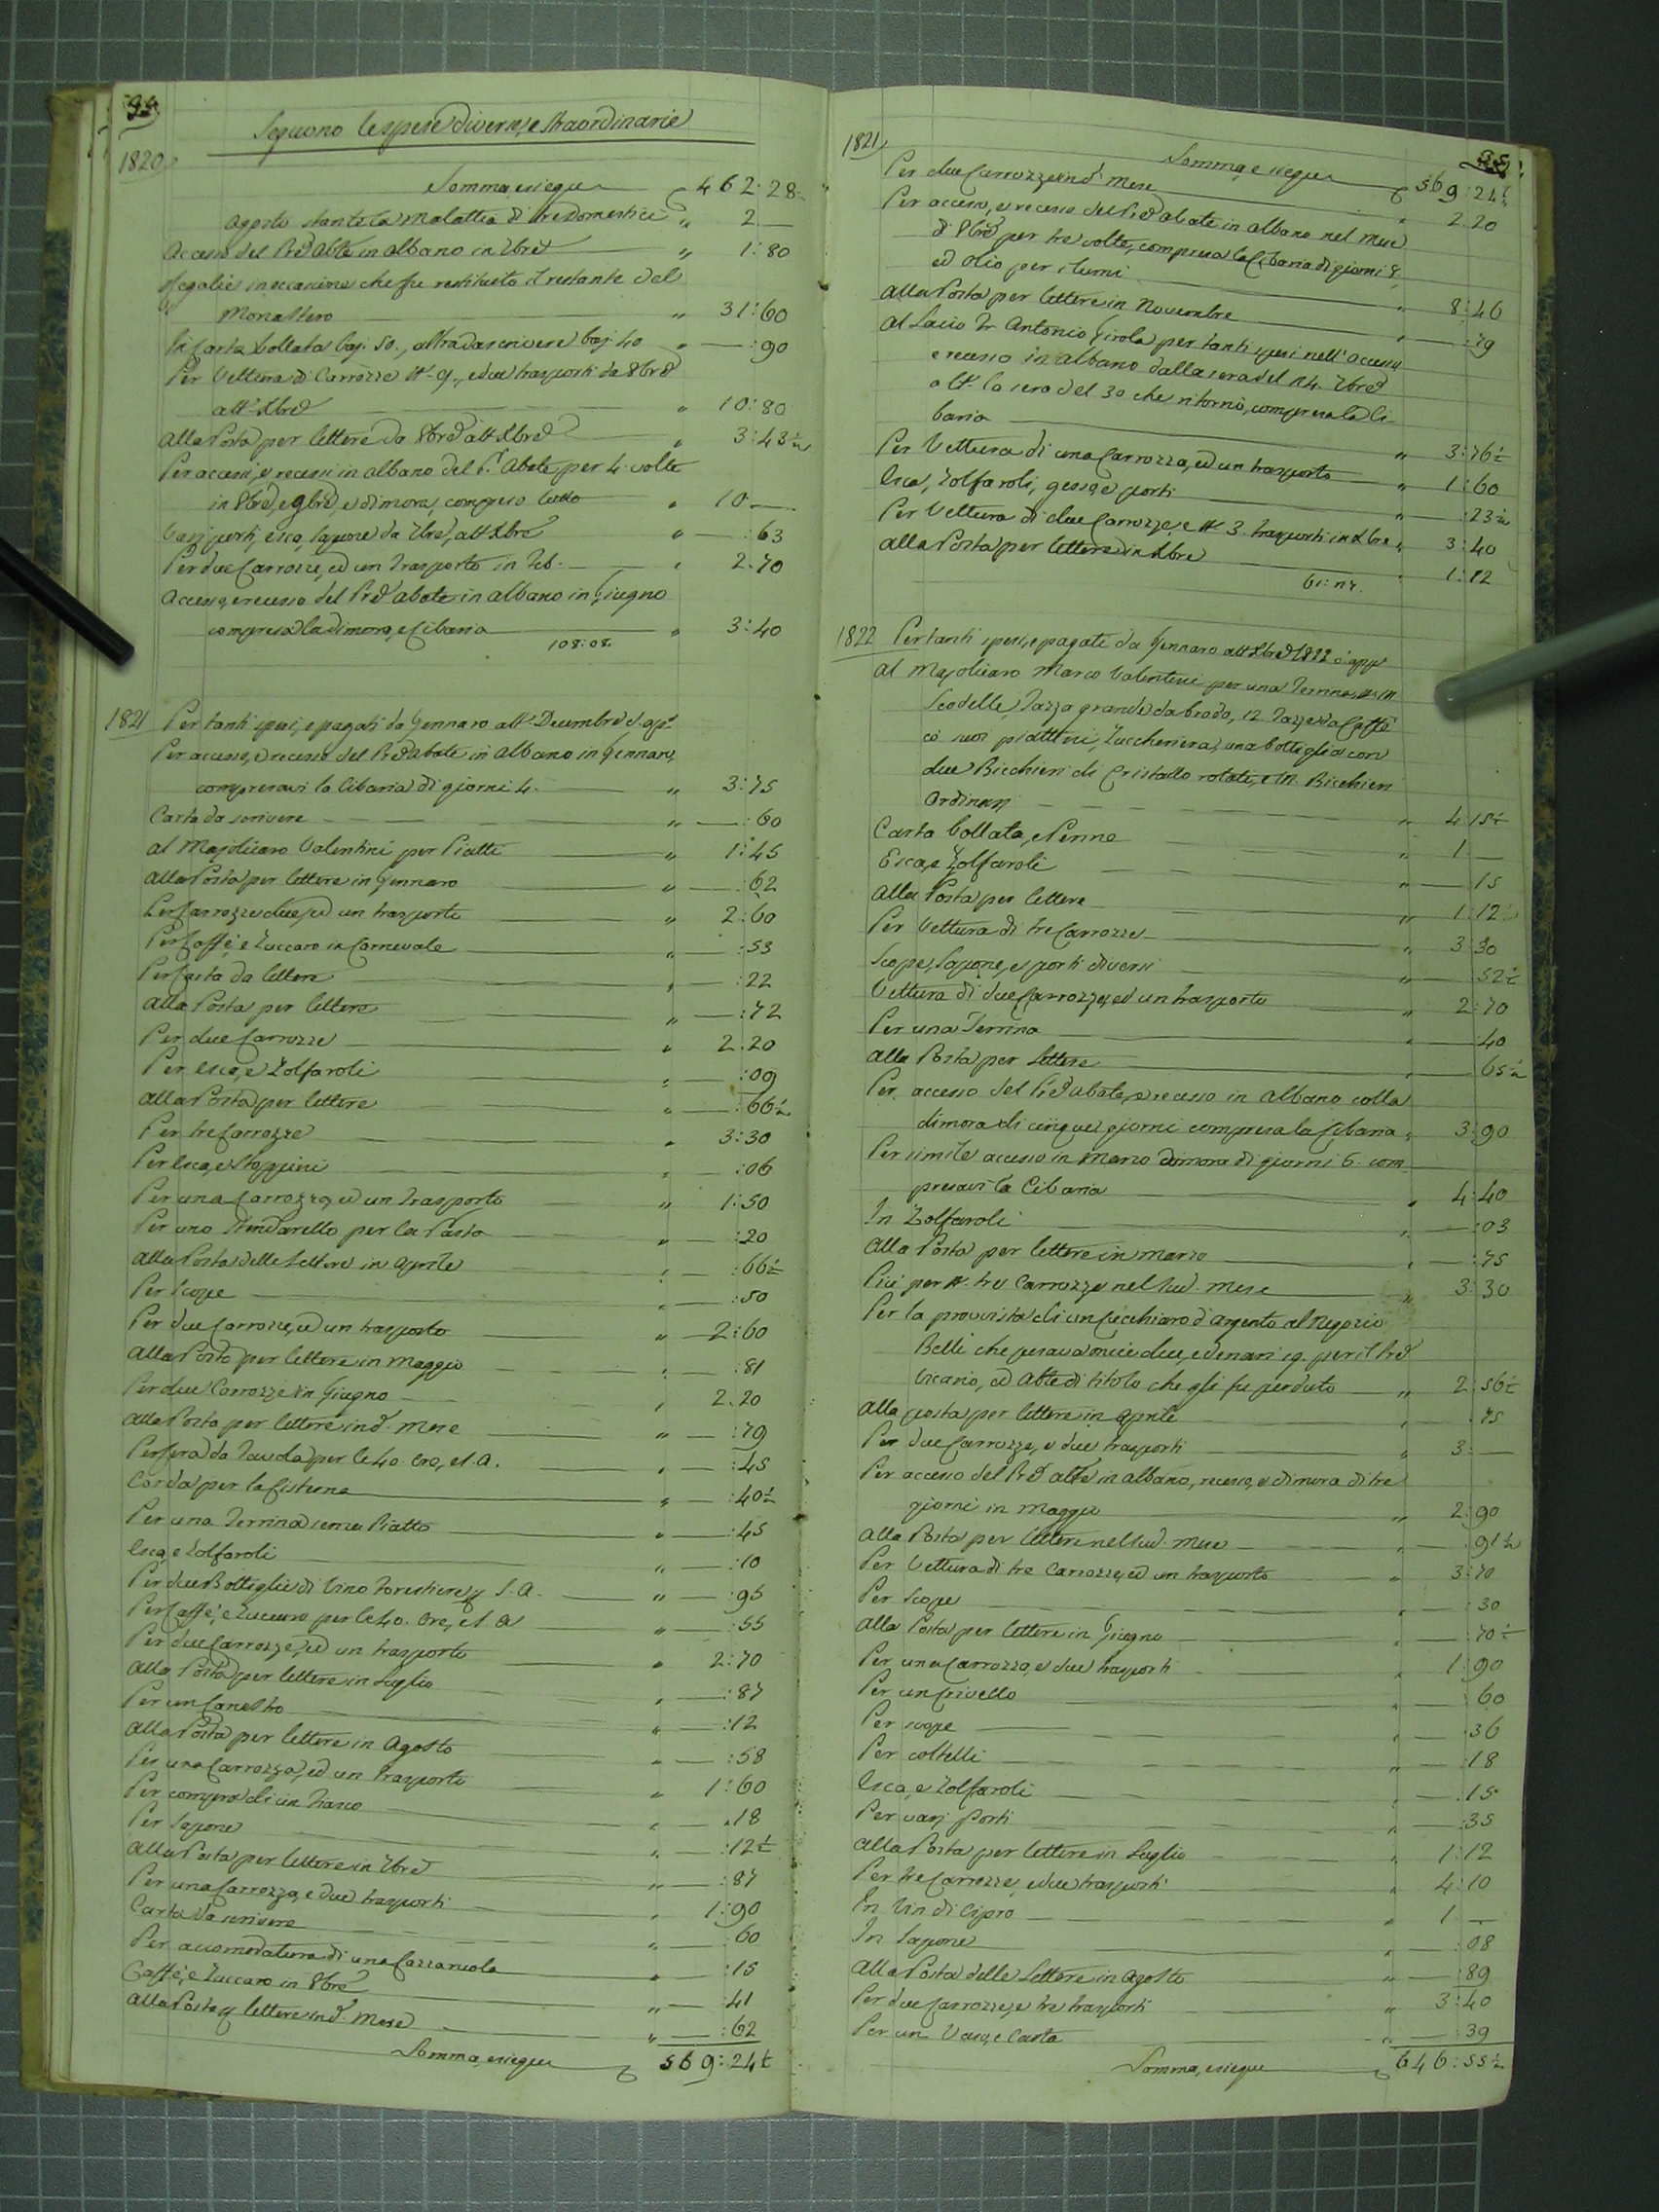 94
Seguono le spese diverse, e straordinarie
1820
Somma, e siegue 462:28
Agosto stante la malattia di tre Domestici " 2. —
Accesso del Pre Abte in Albano in 7bre " 1:80
Regalie in occasione che fu restituito il restante del
Monastero " 31:60
In Carta bollata baj: 50., altra da scrivere baj: 40 " — :90
Per Vettura di Carrozze N. 9., e due trasporti da 8bre
all' Xbre " 10:80
Alla Posta per lettere da 8bre all' Xbre " 3:43½
Per accessi, e recessi in Albano del P. Abate per 4. volte
in 8bre, e 9bre, e dimora, compreso tutto " 10 —
Varj porti, esca, sapone da 7bre, all' Xbre " — :63
Per due Carrozze, ed un Trasporto in Feb. — " 2.70
Accesso, e recesso del Pre Abate in Albano in Giugno
compresa la dimora, e Cibaria " 3:40
108:08.
1821 Per tanti spesi, e pagati da Gennaro all' Decembre d. app.
Per accesso, e recesso del Pre Abate in Albano in Gennaro,
compresavi la Cibaria di giorni 4. " 3:75
Carta da scrivere " — :60
Al Majolicaro Valentini per Piatti " 1:45
Alla Posta per lettere in Gennaro " — :62
Per Carrozze due, ed un trasporto " 2:60
Per Caffè, e Zuccaro in Carnevale " — :53
Per Carta da lettere " — :22
Alla Posta per lettere " — :72
Per due Carrozze " 2.20
Per esca, e Zolfaroli " — :09
Alla Posta per lettere " — :66½
Per tre Carrozze " 3:30
Per esca, e Stoppini " :06
Per una Carrozza, ed un Trasporto " 1:50
Per uno Stendarello per la Pasta " — :20
Alla Posta delle Lettere in Aprile " — :66½
Per Scope " — :50
Per due Carrozze, ed un trasporto " 2:60
Alla Posta per lettere in Maggio " :81
Per due Carrozze in Giugno " 2.20
Alla Posta per lettere in d. Mese " — :79
Per Cera da Tavola per le 40. Ore, e S. A. " — :45
Corda per la Cisterna " — :40½
Per una Terrina senza Piatto " — :45
Esca, e Zolfaroli " — :10
Per due Bottiglie di Vino Forestiere p S. A. " — :95
Per Caffè, e Zuccaro per le 40. Ore, e S. A. " — :55
Per due Carrozze, ed un trasporto " 2:70
Alla Posta per lettere in Luglio " — :87
Per un Canestro " — :12
Alla Posta per lettere in Agosto " — :58
Per una Carrozza, ed un trasporto " 1:60
Per compra di un Fiasco " — .18
Per Sapone " — :12½
Alla Posta per lettere in 7bre " — :87
Per una Carrozza, e due trasporti " 1:90
Carta da scrivere " — 60
Per accomodatura di una Cazzaruola " — :15
Caffè, e Zuccaro in 8bre " — :41
Alla Posta p lettere in d. Mese " — :62
Somma, e siegue 569:24½
95
1821
Somma, e siegue 569:24½
Per due Carrozze in d. Mese " 2.20
Per accesso, e recesso del Pre Abate in Albano nel Mese
di 8bre per tre volte, compresa la Cibaria di giorni 8,
ed Olio per i lumi " 8:46
Alla Posta per lettere in Novembre " — :79
Al Laico Fr. Antonio Girola per tanti spesi nell' accesso
e recesso in Albano dalla sera del 24. 7bre
all' la sera del 30 che ritornò, compresa la Ci-
baria " 3:76½
Per Vettura di una Carrozza, ed un trasporto " 1:60
Esca, Zolfaroli, gesso, e porti " :23½
Per Vettura di due Carrozze, e N. 3. trasporti in Xbre " 3:40
Alla Posta per lettere in Xbre " 1:12
61:17.
1822 Per tanti spesi, e pagati da Gennaro all' Xbre 1822 d. app.
Al Majolicaro Marco Valentini per una Terrina, N.
Scodelle, Tazza grande da brodo, 12 Tazze da Caffè
co' suoi piattini, Zuccheriera, una bottiglia con
due Bicchieri di Cristallo rotati, e Bicchieri
Ordinarj " 4 15½
Carta bollata, e Penne " 1 —
Esca, e Zolfaroli " — 15
Alla Posta per lettere " 1:12½
Per Vettura di tre Carrozze " 3:30
Scope, Sapone, e porti diversi " 52½
Vettura di due Carrozze, ed un trasporto " 2:70
Per una Terrina " :40
Alla Posta per Lettere " 65½
Per accesso del Pre Abate, e recesso in Albano colla
dimora di cinque giorni compresa la Cibaria " 3:90
Per simile accesso in Marzo dimora di giorni 6. com-
presavi la Cibaria " 4:40
In Zolfaroli " — :03
Alla Posta per lettere in Marzo " — :75
Più per N. tre Carrozze nel sud. Mese " 3:30
Per la provvista di un Cucchiaro d'argento al Negozio
Belli che pesava oncie due, e denari 19. per il Pre
Vicario, ed Abte di titolo che gli fu perduto " 2:56½
Alla posta per lettere in Aprile " .75
Per due Carrozze, e due trasporti " 3: —
Per accesso del Pre Abte in Albano, recesso, e dimora di tre
giorni in Maggio " 2:90
Alla Posta per lettere nel sud. Mese " — :91½
Per Vettura di tre Carrozze, ed un trasporto " 3:70
Per Scope " — :30
Alla Posta per lettere in Giugno " — :70½
Per una Carrozza, e due trasporti " 1:90
Per un Crivello " — :60
Per scope " — :36
Per coltelli " — :18
Esca, e Zolfaroli " — :15
Per varj Porti " — :35
Alla Posta per lettere in Luglio " 1:12
Per tre Carrozze, e due trasporti " 4:10
In Vin di Cipro " 1. —
In Sapone " — :08
Alla Posta delle Lettere in Agosto " — :89
Per due Carrozze, e tre trasporti " 3:40
Per un Vaso, e Carta " — :39
Somma, e siegue 646:55½